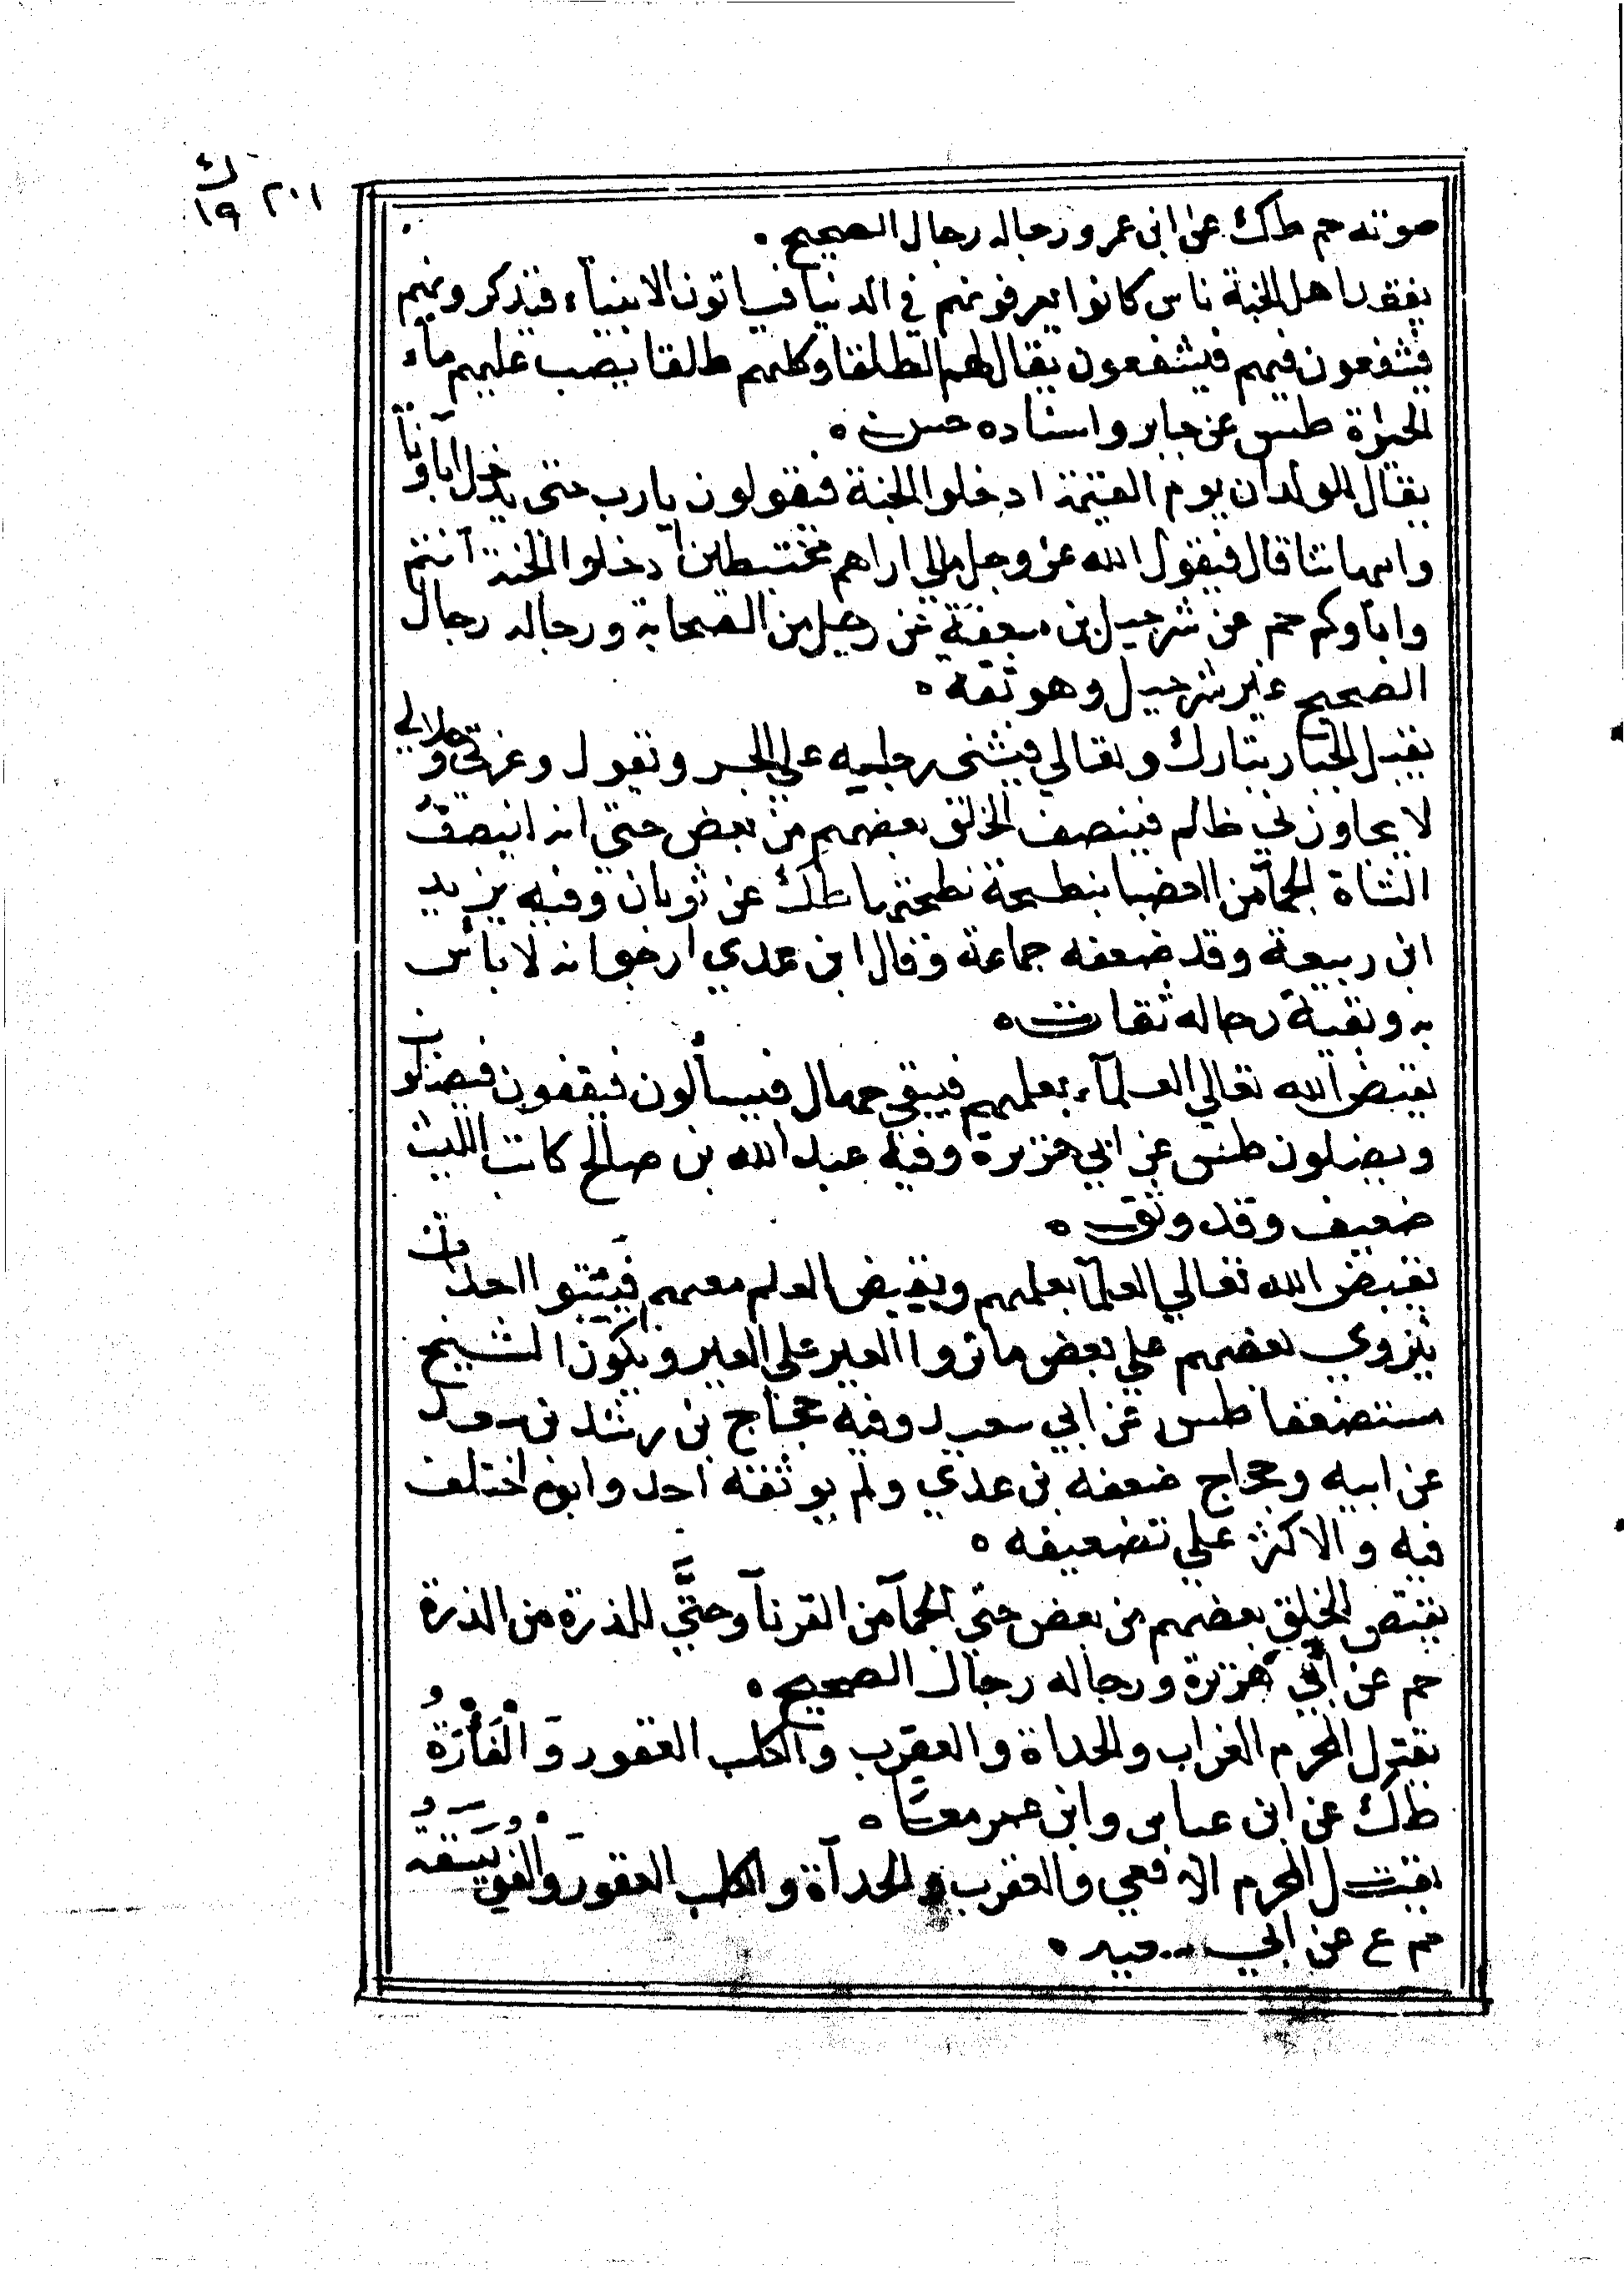 ٢٠١ ك
١٩
صوته حم طك عن ابن عمر ورجاله رجال الصحيح ٠
يفقد اهل الجنة ناس كانوا يعرفونهم في الدنيا فياتون الانبياء فيذكرونهم
فيشفعون فيهم فيشفعون يقال لهم الطلقا وكلهم طلقا يصب عليهم ماء
الحياة طس عن جابر واسناده حسن ٥
يقال للولدان يوم القيمة ادخلوا الجنة فيقولون يارب حتى يدخل اباونا
وامهاتنا قال فيقول الله عز وجل مالي اراهم محتبطين ادخلوا الجنة انتم
واباوكم حم عن شرحبيل بن شفعة عن رجل من الصحابة ورجاله رجال
الصحيح غير شرحبيل وهو ثقة ٥
يقبل الجبار تبارك وتعالي فيثنى رجليه علي الجسر ويقول وعزتي وجلالي
لا يجاوزني ظالم فينصف الخلق بعضهم من بعض حتى انه لينصف
الشاة الجمآ من العضبا بنطحة نطحتها طك عن ثوبان وفيه يزيد
ابن ربيعة وقد ضعفه جماعة وقال ابن عدي ارجو انه لا باس
به وبقية رجاله ثقات ٥
يقبض الله تعالي العلمآء بعلمهم فيبقي جهال فيسألون فيفتون فيضلون
ويضلون طس عن ابي هريرة وفيه عبد الله بن صالح كاتب الليث
ضعيف وقد وثق ٥
يقبض الله تعالي العلمآ بعلمهم ويقبض العلم معهم فينبتوا احداث
ينزوي بعضهم علي بعض ما نزوا العير على العير ويكون الشيخ
مستضعفا طس عن ابي سعيد وفيه حجاج بن رشد بن سعد
عن ابيه وحجاج ضعفه بن عدي ولم يوثقه احد وابوه اختلف
فيه والاكثر علي تضعيفه ٥
يقتص الخلق بعضهم من بعض حتي الجمآ من القرنآ وحتَّي للذرة من الذرة
حم عن أبي هريرة ورجاله رجال الصحيح ٠
يقتل المحرم الغراب والحداة والعقرب والكلب العقور وَالْفَأْرَةُ
طك عن ابن عباس وابن عمر معًا ٥
يقتل المحرم الافعي والعقرب والحدآة والكلب العقور والفُوَيْسَقَةُ
حم ع عن ابي سعيد ٠